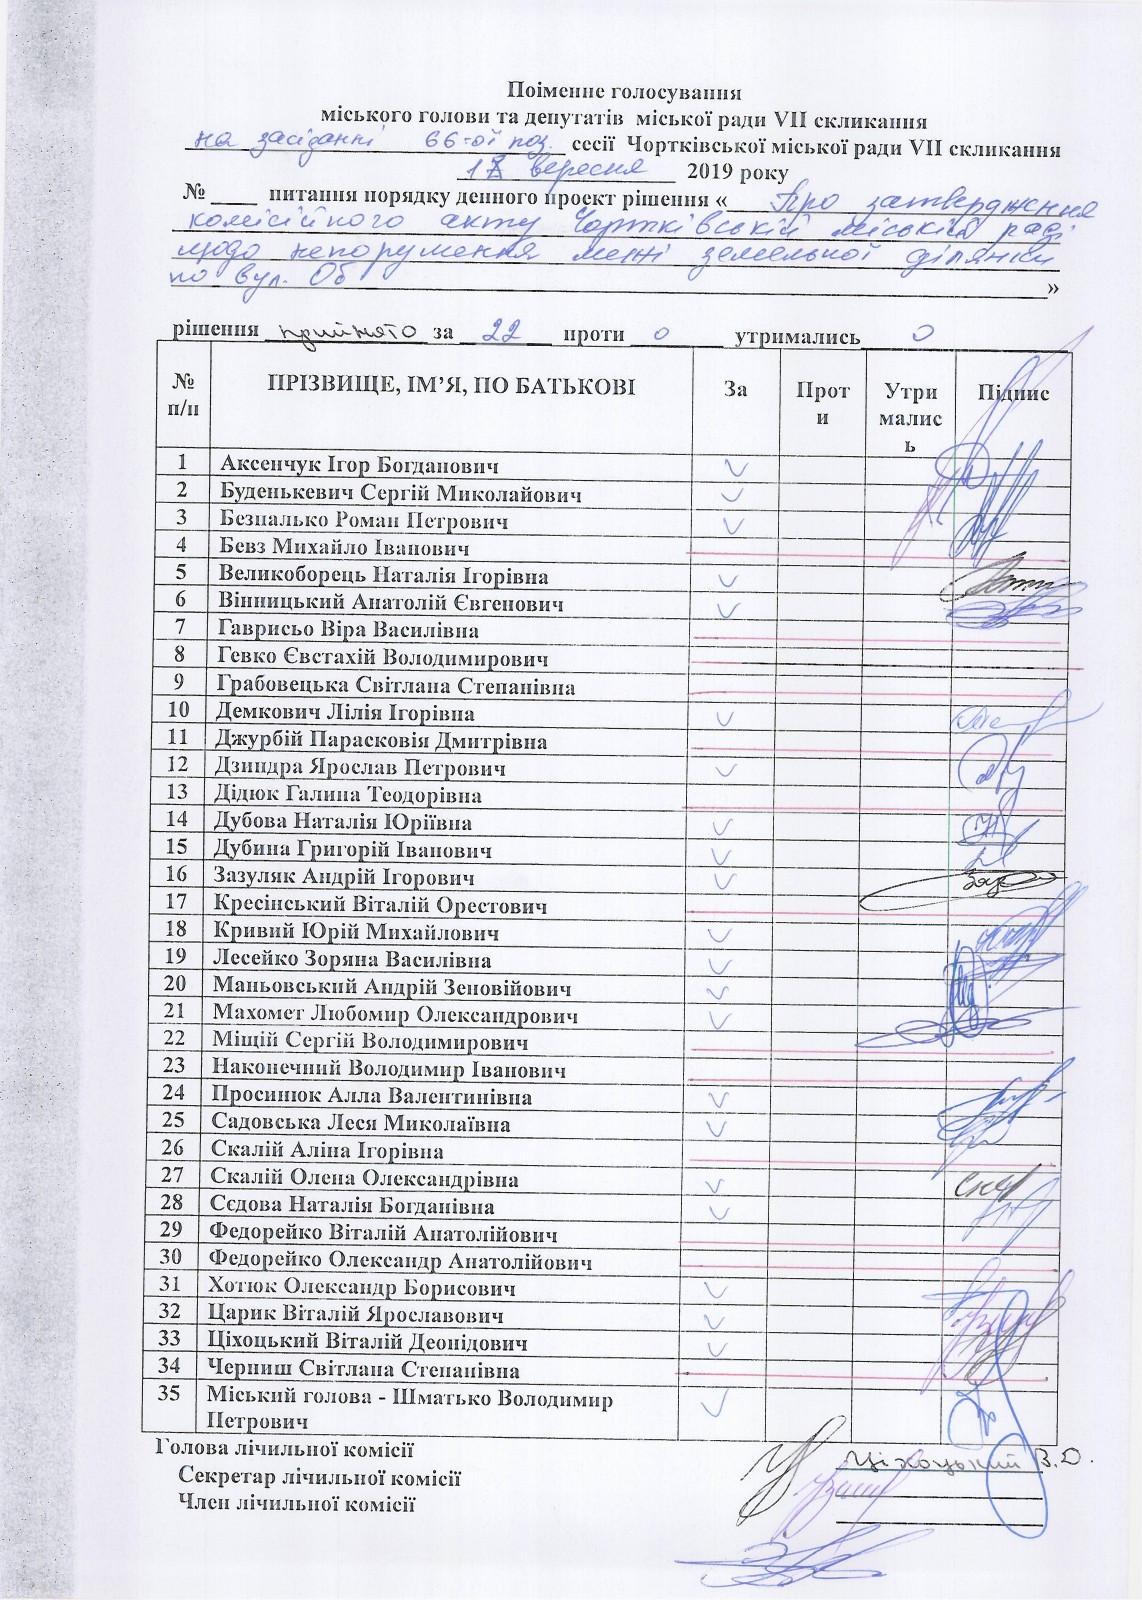 Поіменне голосування
міського голови та депутатів міської ради VII скликання
на засіданні 66-ої поз. сесії Чортківської міської ради VII скликання
вересня 2019 року
№ ____ питання порядку денного проект рішення « Про затвердження
комісійного акту Чортківській міській раді
щодо непорушення межі земельної ділянки
по вул. Об »
рішення прийнято за 22 проти 0 утримались 0
№ п/п ПРІЗВИЩЕ, ІМ’Я, ПО БАТЬКОВІ За Проти Утрималис ь Підпис
1 Аксенчук Ігор Богданович
2 Буденькевич Сергій Миколайович
3 Безпалько Роман Петрович
4 Бевз Михайло Іванович
5 Великоборець Наталія Ігорівна
6 Вінницький Анатолій Євгенович
7 Гаврисьо Віра Василівна
8 Гевко Євстахій Володимирович
9 Грабовецька Світлана Степанівна
10 Демкович Лілія Ігорівна
11 Джурбій Парасковія Дмитрівна
12 Дзиндра Ярослав Петрович
13 Дідюк Галина Теодорівна
14 Дубова Наталія Юріївна
15 Дубина Григорій Іванович
16 Зазуляк Андрій Ігорович
17 Кресінський Віталій Орестович
18 Кривий Юрій Михайлович
19 Лесейко Зоряна Василівна
20 Маньовський Андрій Зеновійович
21 Махомет Любомир Олександрович
22 Міщій Сергій Володимирович
23 Наконечний Володимир Іванович
24 Просинюк Алла Валентинівна
25 Садовська Леся Миколаївна
26 Скалій Аліна Ігорівна
27 Скалій Олена Олександрівна
28 Сєдова Наталія Богданівна
29 Федорейко Віталій Анатолійович
30 Федорейко Олександр Анатолійович
31 Хотюк Олександр Борисович
32 Царик Віталій Ярославович
33 Ціхоцький Віталій Деонідович
34 Черниш Світлана Степанівна
35 Міський голова - Шматько Володимир
Петрович
Голова лічильної комісії Ціхоцький В.Д.
Секретар лічильної комісії
Член лічильної комісії